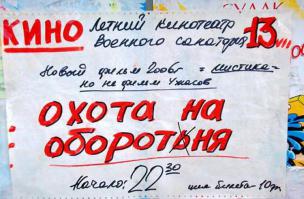 КИНО Летний Кинотеатр
Военного санатория 13
СУДАК
Новый фильм 2006г = мистика =
но не фильм ужасов
ОХОТА НА
ОБОРОТЬНЯ
Начало: 22 30 цена билета 10грн